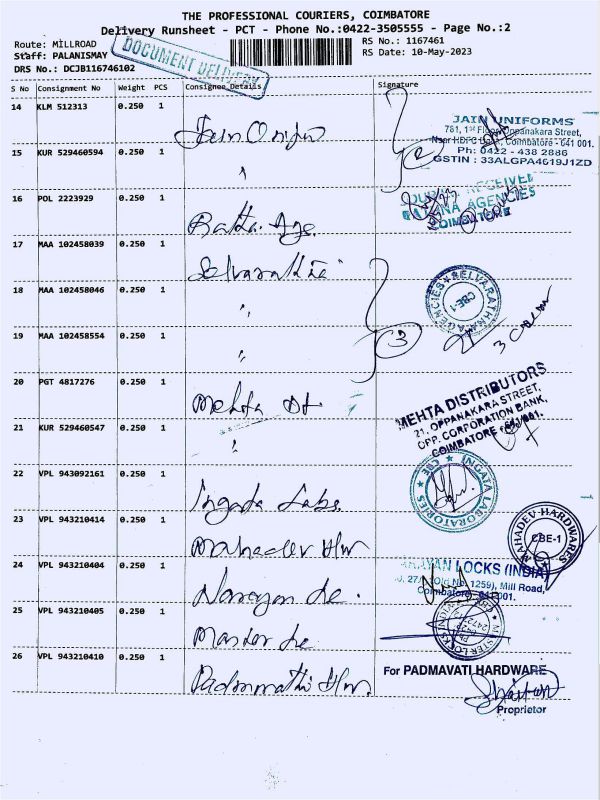 THE PROFESSIONAL COURIERS, COIMBATORE
Delivery Runsheet - PCT - Phone No.:0422-3505555 - Page No.:2
Route: MILLROAD
RS No.: 1167461
Staff: PALANISMAY
RS Date: 10-May-2023
DRS No.: DCJB116746102
DOCUMENT DELIVERY
S No Consignment No Weight PCS Consignee Details Signature
14 KLM 512313 0.250 1
JAIN UNIFORMS
781, 1st Floor, Oppanakara Street,
Near HDFC Bank, Coimbatore - 641 001.
Ph: 0422 - 438 2886
GSTIN : 33ALGPA4619J1ZD
15 KUR 529460594 0.250 1
2
16 POL 2223929 0.250 1
RECEIVED
AGENCIES
COIMBATORE
17 MAA 102458039 0.250 1
18 MAA 102458046 0.250 1
"
SELVARATHNA AGENCIES
CBE-1
19 MAA 102458554 0.250 1
"
3
20 PGT 4817276 0.250 1
Mehta Dt
MEHTA DISTRIBUTORS
21, OPPANAKARA STREET,
OPP. CORPORATION BANK,
COIMBATORE - 641 001.
21 KUR 529460547 0.250 1
"
22 VPL 943092161 0.250 1
Ingata Labs.
INGATA LABORATORIES
CBE
23 VPL 943210414 0.250 1
Mahadev Hw
MAHADEV HARDWARES
CBE-1
24 VPL 943210404 0.250 1
Narayan Lc.
NARAYAN LOCKS (INDIA)
(Old No. 1259), Mill Road,
Coimbatore - 641 001.
25 VPL 943210405 0.250 1
Master Lc
MASTER LOCKS
26 VPL 943210410 0.250 1
Padmavathi Hw.
For PADMAVATI HARDWARE
Proprietor